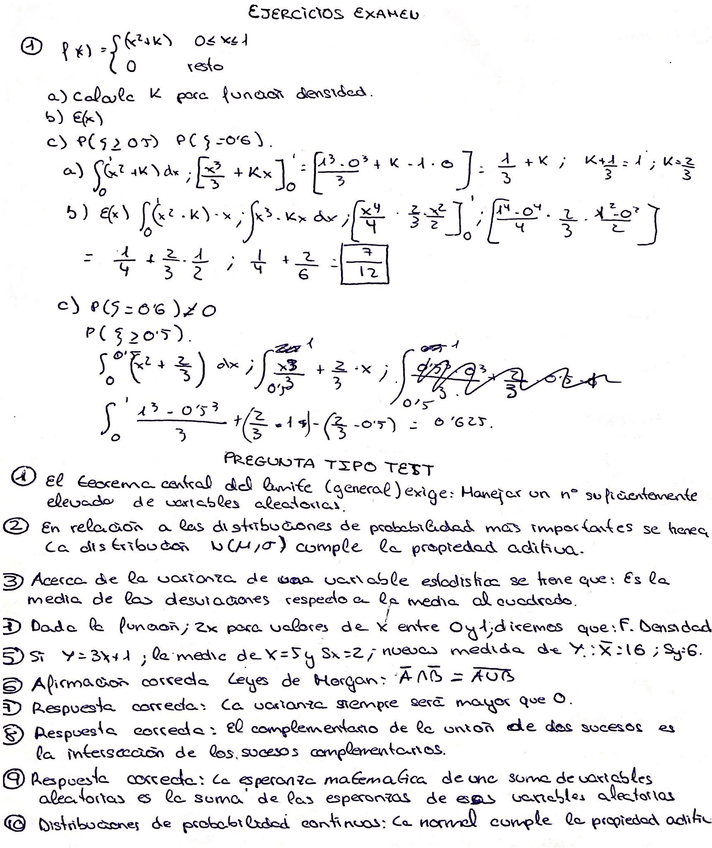 EJERCICIOS EXAMEN
① f(x) = { (x²+K) 0≤x≤1
{ 0 resto
a) Calcule K para función densidad.
b) E(x)
c) P(ξ≥0'5) P(ξ=0'6).
a) ∫₀¹(x²+K)dx; [x³/3 + Kx]₀¹ = [1³-0³/3 + K-1·0] = 1/3 + K; K+1/3=1; K=2/3
b) E(x) ∫₀¹(x²·K)·x; ∫x³·Kx dx; [x⁴/4 · 2/3·x²/2]₀¹; [1⁴-0⁴/4 · 2/3 · 1²-0²/2]
= 1/4 + 2/3·1/2 ; 1/4 + 2/6 = 7/12
c) P(ξ=0'6)≠0
P(ξ≥0'5).
∫₀^0'5 (x²+2/3) dx; ∫_0'5^1 x³/3 + 2/3·x; ∫_0'5^1
∫₀¹ 1³-0'5³/3 + (2/3·1)-(2/3-0'5) = 0'625.
PREGUNTA TIPO TEST
① El teorema central del límite (general) exige: Manejar un nº suficientemente
elevado de variables aleatorias.
② En relación a las distribuciones de probabilidad más importantes se tiene
La distribución N(μ,σ) cumple la propiedad aditiva.
③ Acerca de la varianza de una variable estadística se tiene que: Es la
media de las desviaciones respecto a la media al cuadrado.
Dada la función; 2x para valores de X entre 0 y 1; diremos que: F. Densidad
⑤ Si Y=3x+1; la media de X=5 y Sx=2; nuevas medida de Y: X̄=16; Sy=6.
⑥ Afirmación correcta Leyes de Morgan: A̅∩B̅ = A̅U̅B̅
⑦ Respuesta correcta: La varianza siempre será mayor que 0.
⑧ Respuesta correcta: El complementario de la unión de dos sucesos es
la intersección de los sucesos complementarios.
⑨ Respuesta correcta: La esperanza matemática de una suma de variables
aleatorias es la suma de las esperanzas de esas variables aleatorias
⑩ Distribuciones de probabilidad continuas: La normal cumple la propiedad aditiv